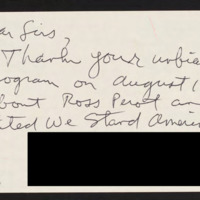 ar Sirs,
Thank your unbia
rogram on August 1
bout Ross Perot an
ited We Stand Ameri